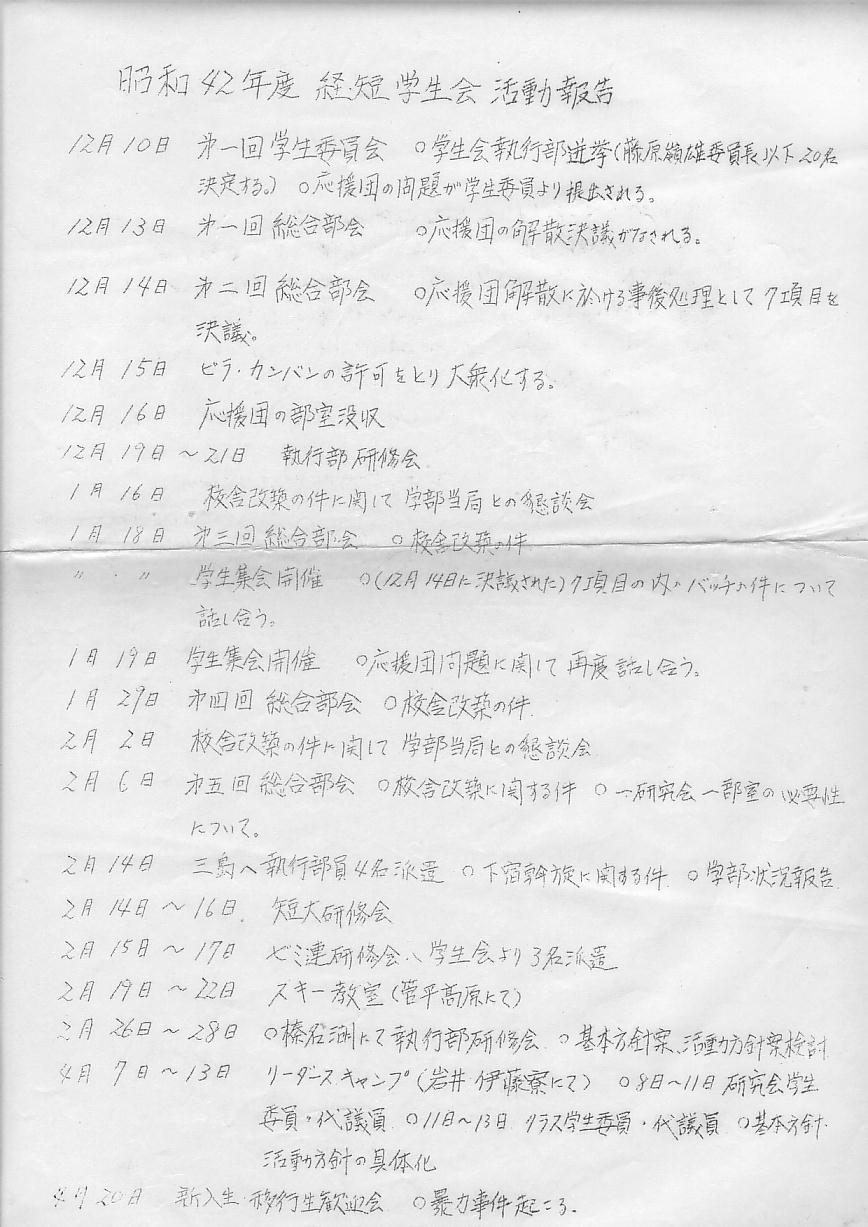 昭和42年度 経・短学生会 活動報告
12月10日 オ一回学生委員会 ○学生会執行部選挙(藤原嶺雄委員長以下20名
決定する。) ○応援団の問題が学生委員より提出される。
12月13日 オ一回総合部会 ○応援団の解散決議がなされる。
12月14日 オ二回総合部会 ○応援団解散に於ける事後処理として7項目を
決議。
12月15日 ビラ・カンバンの許可をとり大衆化する。
12月16日 応援団の部室没収
12月19日~21日 執行部研修会
1月16日 校舎改築の件に関して学部当局との懇談会
1月18日 オ三回総合部会 ○校舎改築の件
〃 . 〃 学生集会開催 ○(12月14日に決議された)7項目の内、バッチの件について
話し合う。
1月19日 学生集会開催 ○応援団問題に関して再度話し合う。
1月29日 オ四回総合部会 ○校舎改築の件
2月2日 校舎改築の件に関して学部当局との懇談会
2月6日 オ五回総合部会 ○校舎改築に関する件 ○一研究会一部室の必要性
について。
2月14日 三島へ執行部員4名派遣 ○下宿斡旋に関する件 ○学部状況報告
2月14日~16日 短大研修会
2月15日~17日 ゼミ連研修会へ学生会より3名派遣
2月19日~22日 スキー教室(菅平高原にて)
2月26日~28日 ○榛名湖にて執行部研修会 ○基本方針案、活動方針案検討
4月7日~13日 リーダースキャンプ(岩井 伊藤寮にて) ○8日~11日 研究会学生
委員・代議員 ○11日~13日 クラス学生委員・代議員 ○基本方針・
活動方針の具体化
4月20日 新入生・移行生歓迎会 ○暴力事件起こる。